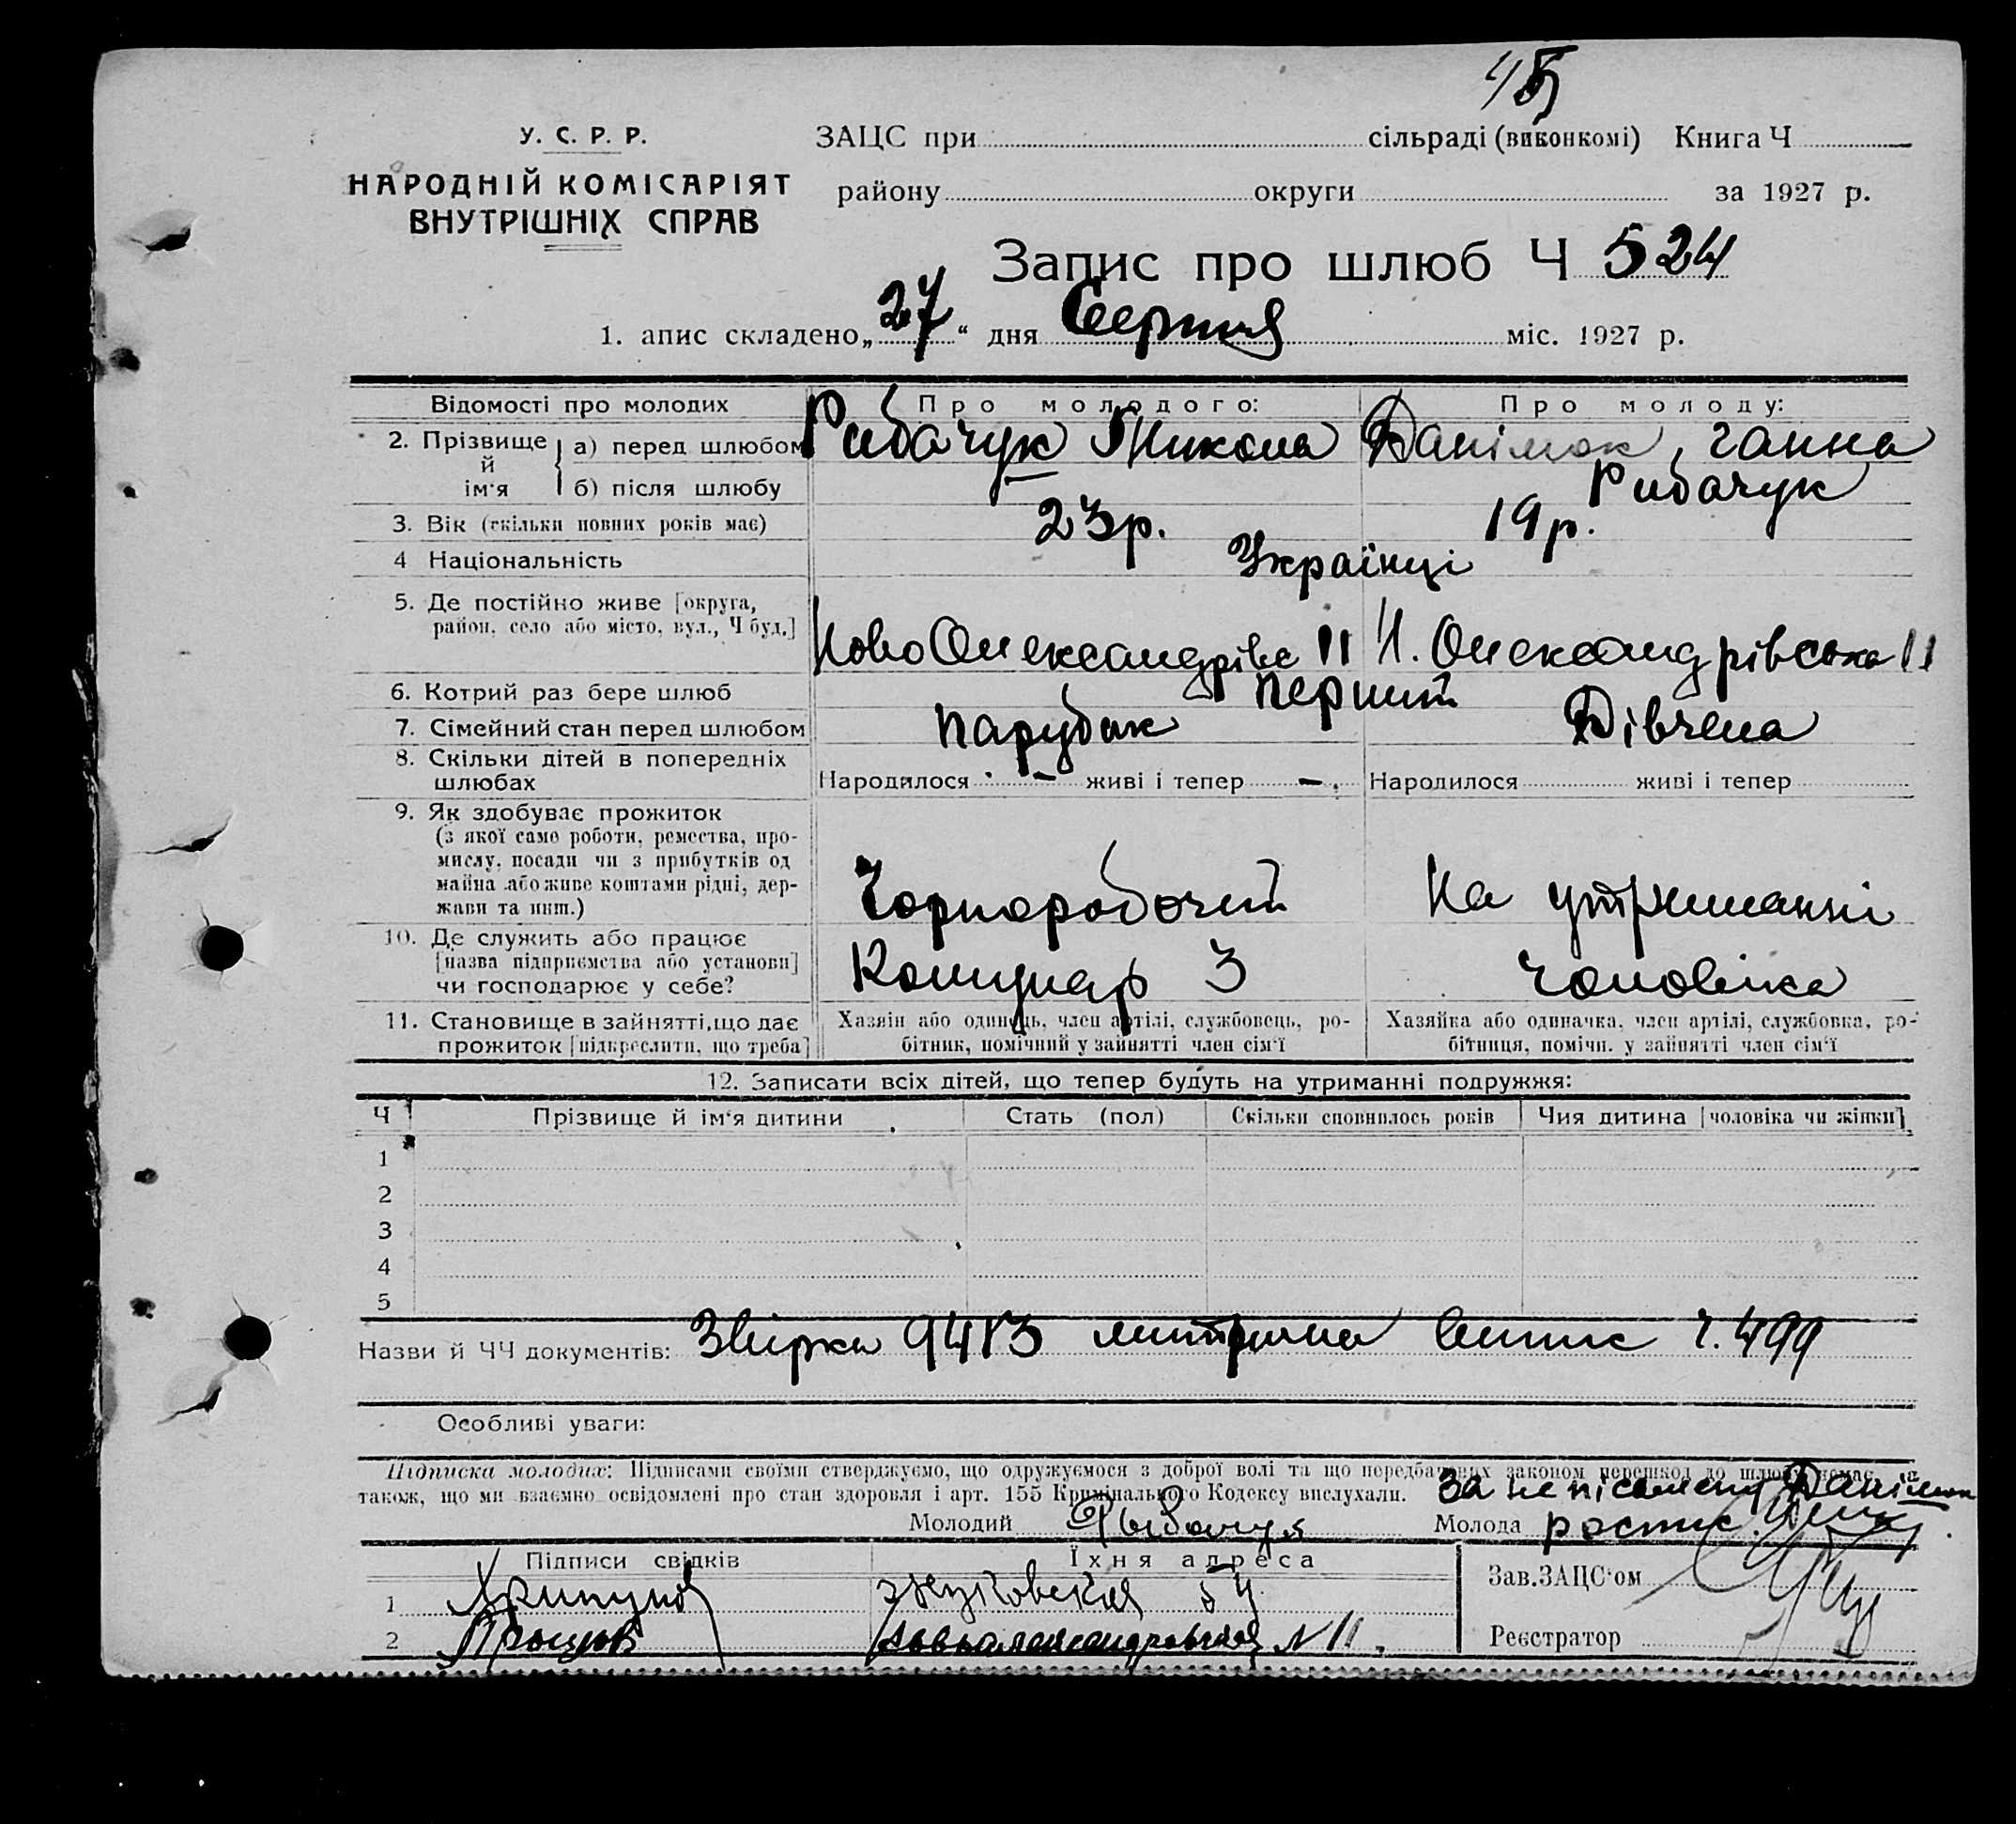 45
У. С. Р. Р.
НАРОДНІЙ КОМІСАРІЯТ
ВНУТРІШНІХ СПРАВ
ЗАЦС при сільраді (виконкомі) Книга Ч
району округи за 1927 р.
Запис про шлюб Ч 524
1. апис складено „27“ дня Серпня міс. 1927 р.
Відомості про молодих Про молодого: Про молоду:
2. Прізвище й ім'я а) перед шлюбом Рибачук Микола Данімок, Ганна
б) після шлюбу Рибачук
3. Вік (скільки повних років має) 23р. 19р.
4 Національність Українці
5. Де постійно живе [округа,
район, село або місто, вул., Ч буд.] Ново Олександрівс 11 Н. Олександрівська 11
6. Котрий раз бере шлюб перший
7. Сімейний стан перед шлюбом парубок Дівчена
8. Скільки дітей в попередніх
шлюбах Народилося - живі і тепер - Народилося живі і тепер
9. Як здобуває прожиток
(з якої само роботи, ремества, про-
мислу, посади чи з прибутків од
майна або живе коштами рідні, дер-
жави та инш.) Чорноробочий На утриманні
10. Де служить або працює
[назва підприємства або установи]
чи господарює у себе? Комунар 3 чоловіка
11. Становище в зайнятті, що дає
прожиток [підкреслити, що треба]
Хазяїн або одинець, член артілі, службовець, ро-
бітник, помічний у зайнятті член сім'ї
Хазяйка або одиначка, член артілі, службовка, ро-
бітниця, помічн. у зайнятті член сім'ї
12. Записати всіх дітей, що тепер будуть на утриманні подружжя:
Ч Прізвище й ім'я дитини Стать (пол) Скільки сповнилось років Чия дитина [чоловіка чи жінки]
1
2
3
4
5
Назви й ЧЧ документів: Звірка 9413 митрична випис ч. 499
Особливі уваги:
Підписка молодих: Підписами своїми стверджуємо, що одружуємося з доброї волі та що передбачених законом перешкод до шлюбу немає, а
також, що ми взаємно освідомлені про стан здоров'я і арт. 155 Кримінального Кодексу вислухали. За неписьмену Данімок
Молодий Рыбачук Молода роспис.
Підписи свідків Їхня адреса Зав. ЗАЦС'ом
1 54
2 Новоалександровская N 11. Реєстратор